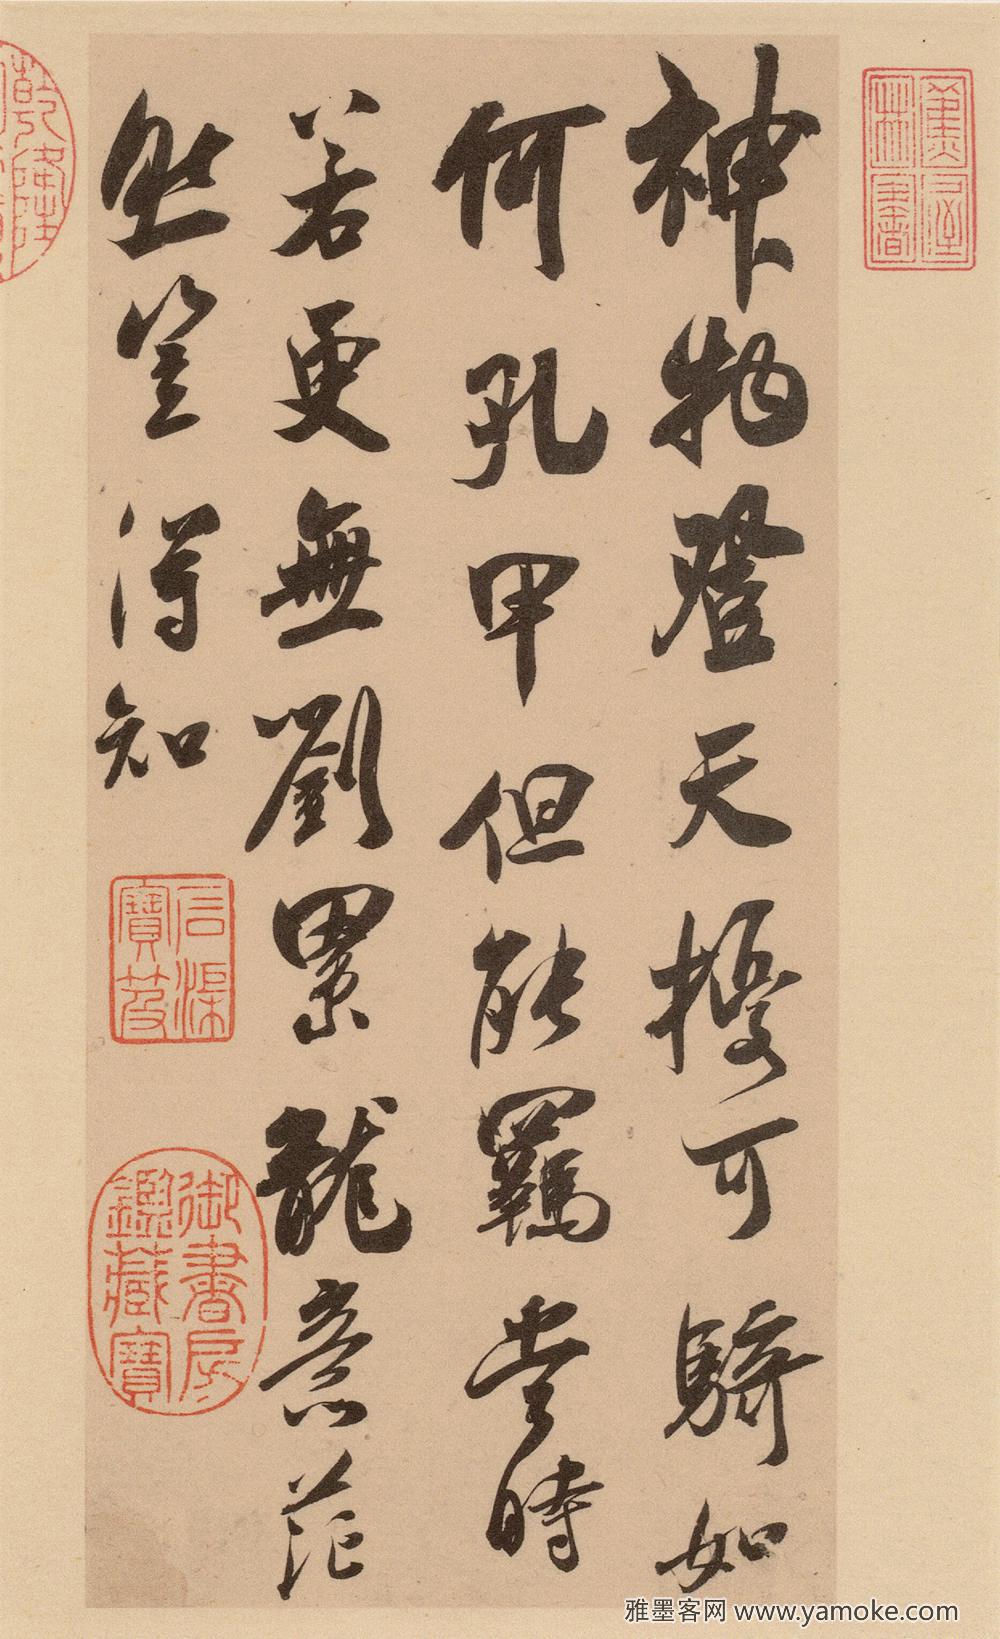 蕉林書屋
神物登天擾可騎如
何孔甲但能羈當時
若更無劉累龍意茫
然豈得知
石渠寶笈
御書房鑑藏寶
乾隆
雅墨客网 www.yamoke.com